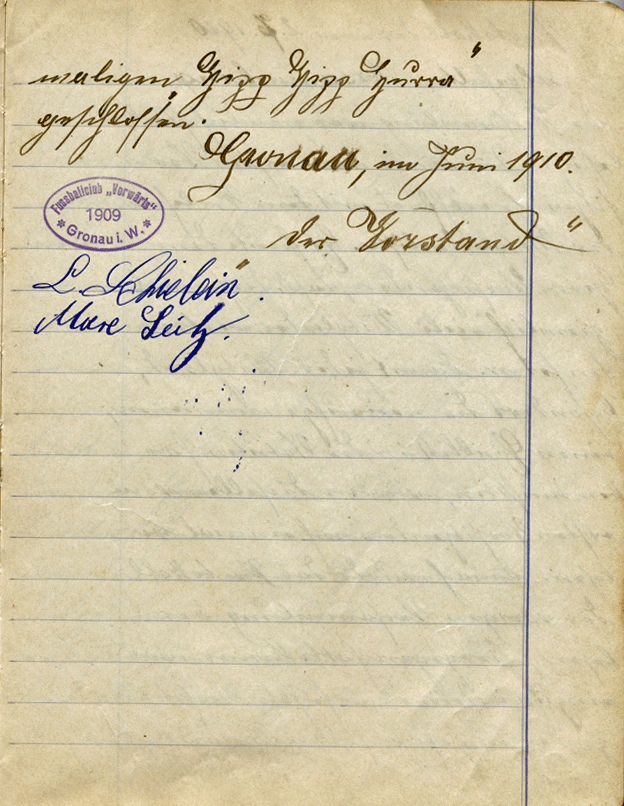 maligen „Hipp Hipp Hurra“
geschlossen.
Gronau, im Juni 1910.
Fussballclub „Vorwärts“
1909
* Gronau i. W. *
Der Vorstand
L.
Marx Seitz.